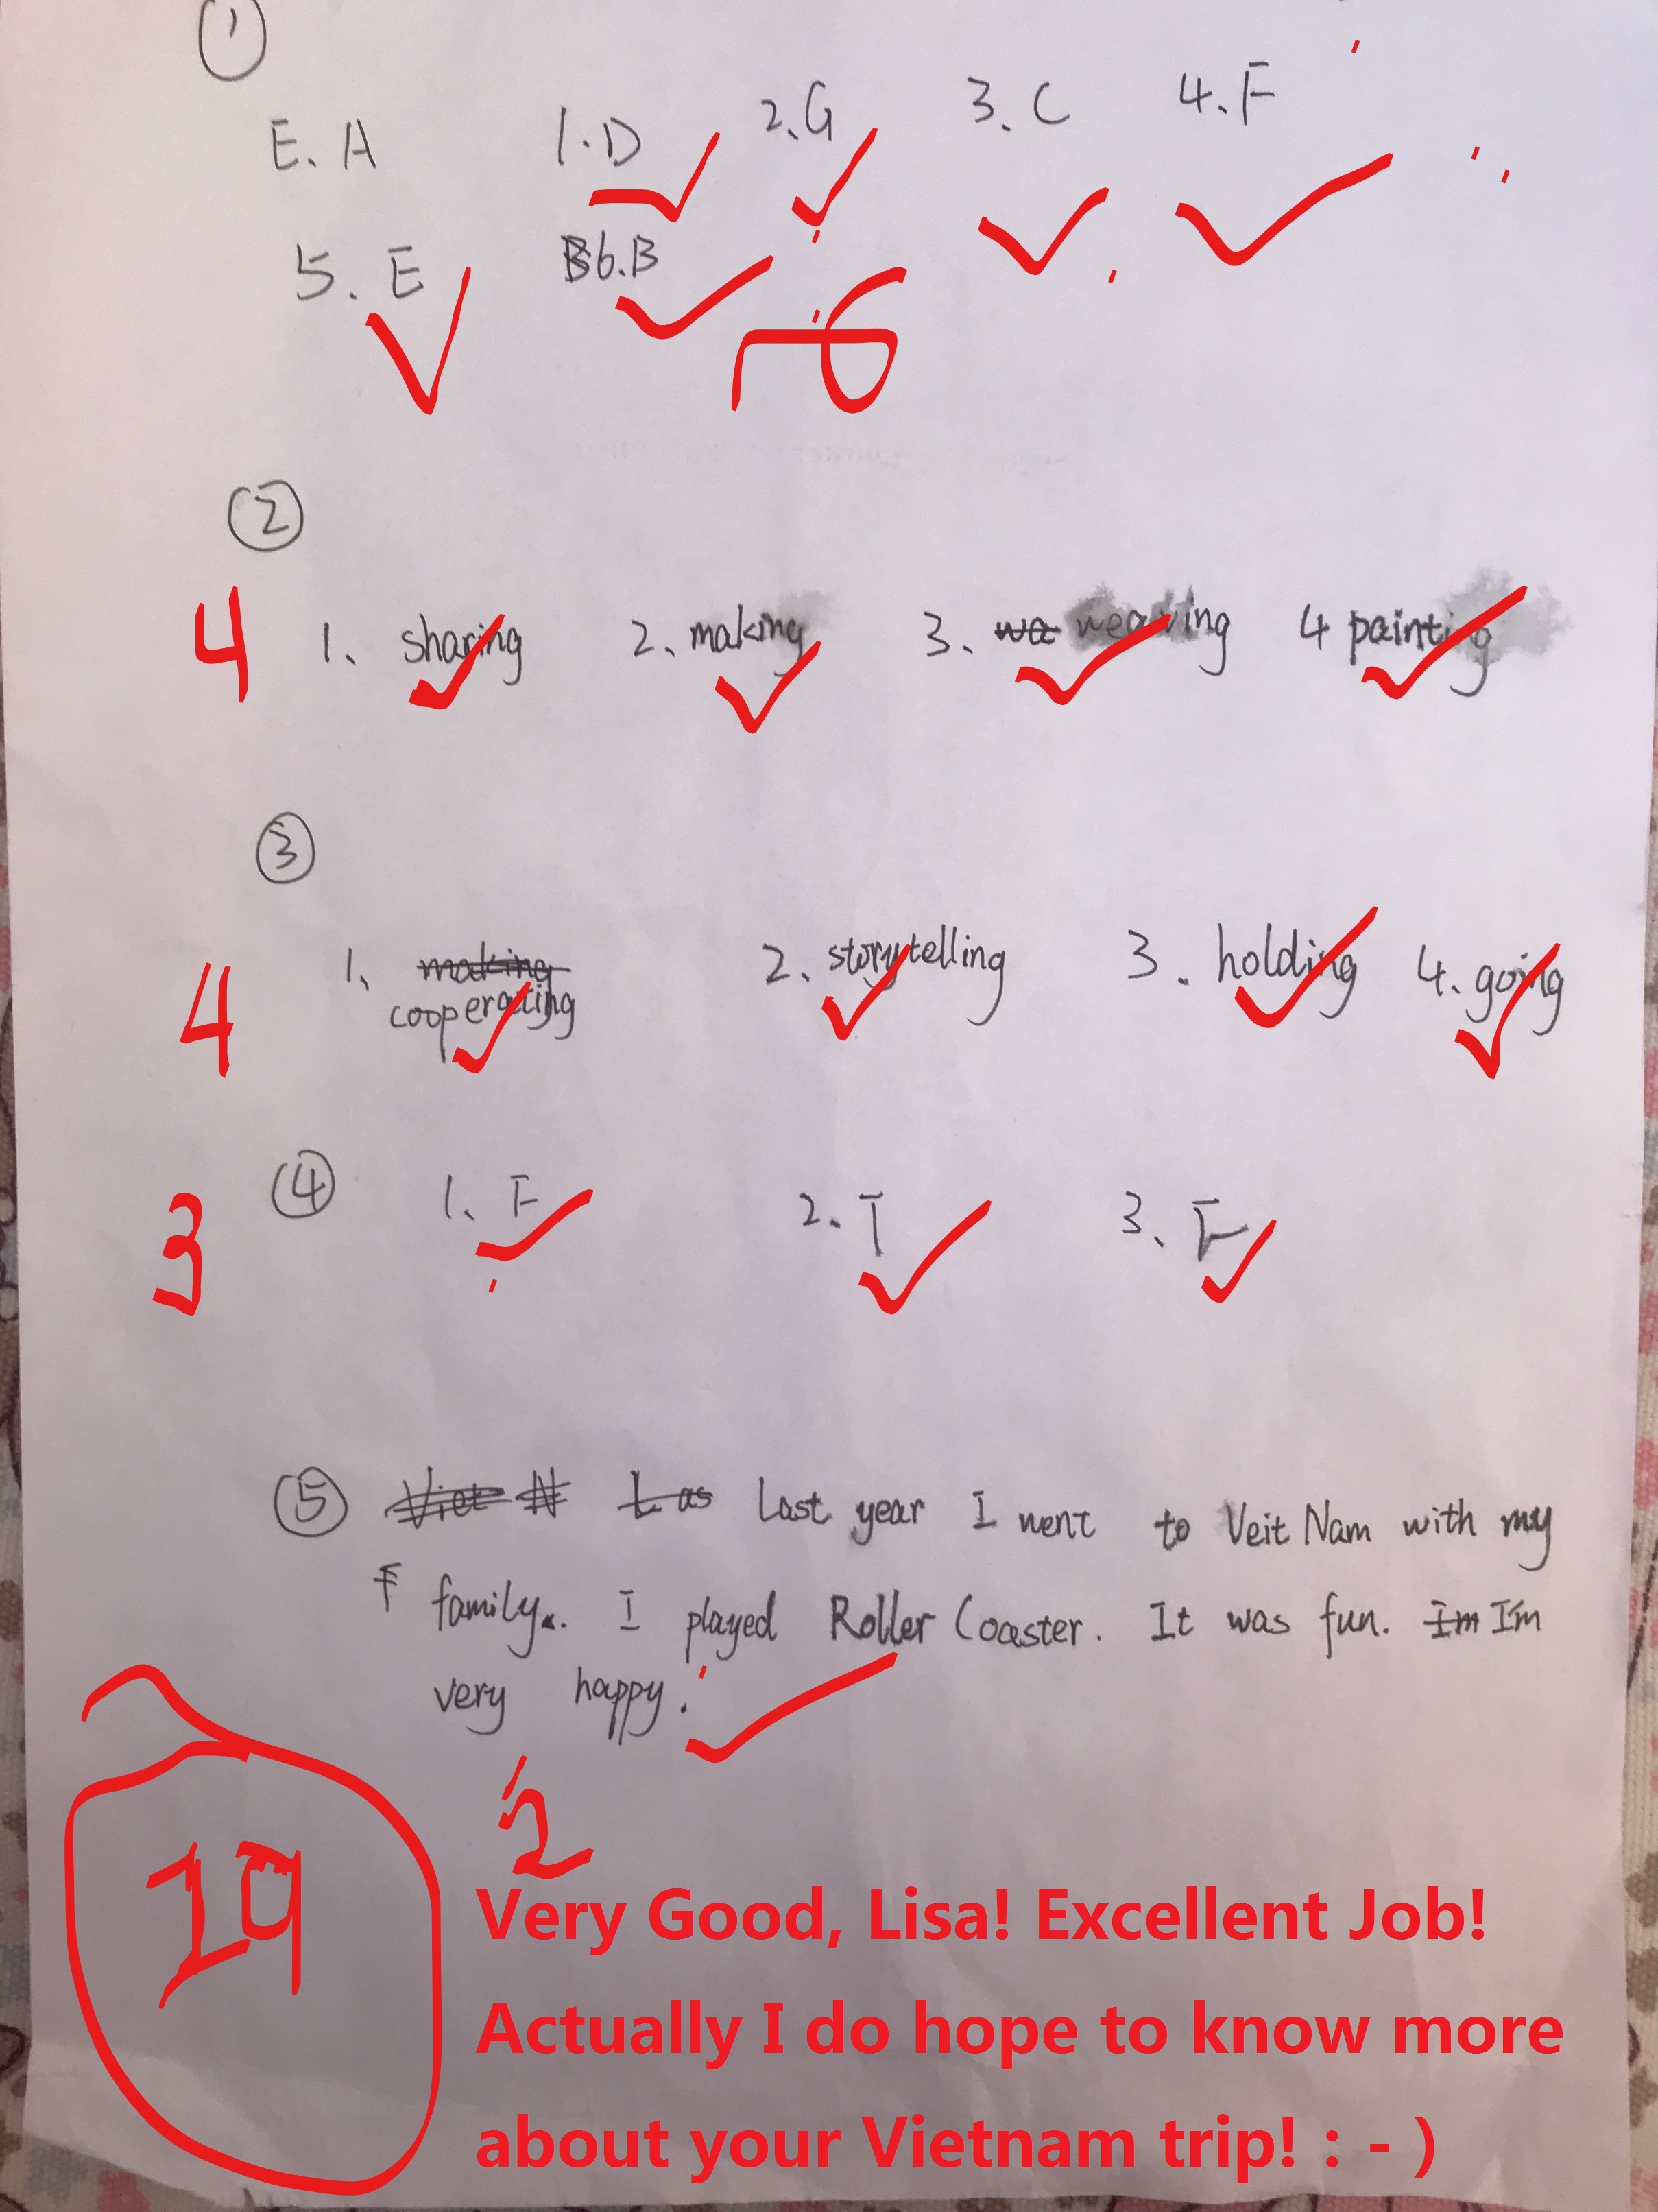 ①
E. A 1. D 2. G 3. C 4. F
5. E 6. B
6
②
4 1、 sharing 2、 making 3、 wa weaving 4 painting
③
1、 making 2、 storytelling 3. holding 4. going
4 cooperating
3 ④ 1、 F 2、 T 3、 F
⑤ Viet N Las Last year I went to Veit Nam with my
f family. I played Roller Coaster. It was fun. Im I'm
very happy.
2
19
Very Good, Lisa! Excellent Job!
Actually I do hope to know more
about your Vietnam trip! : - )